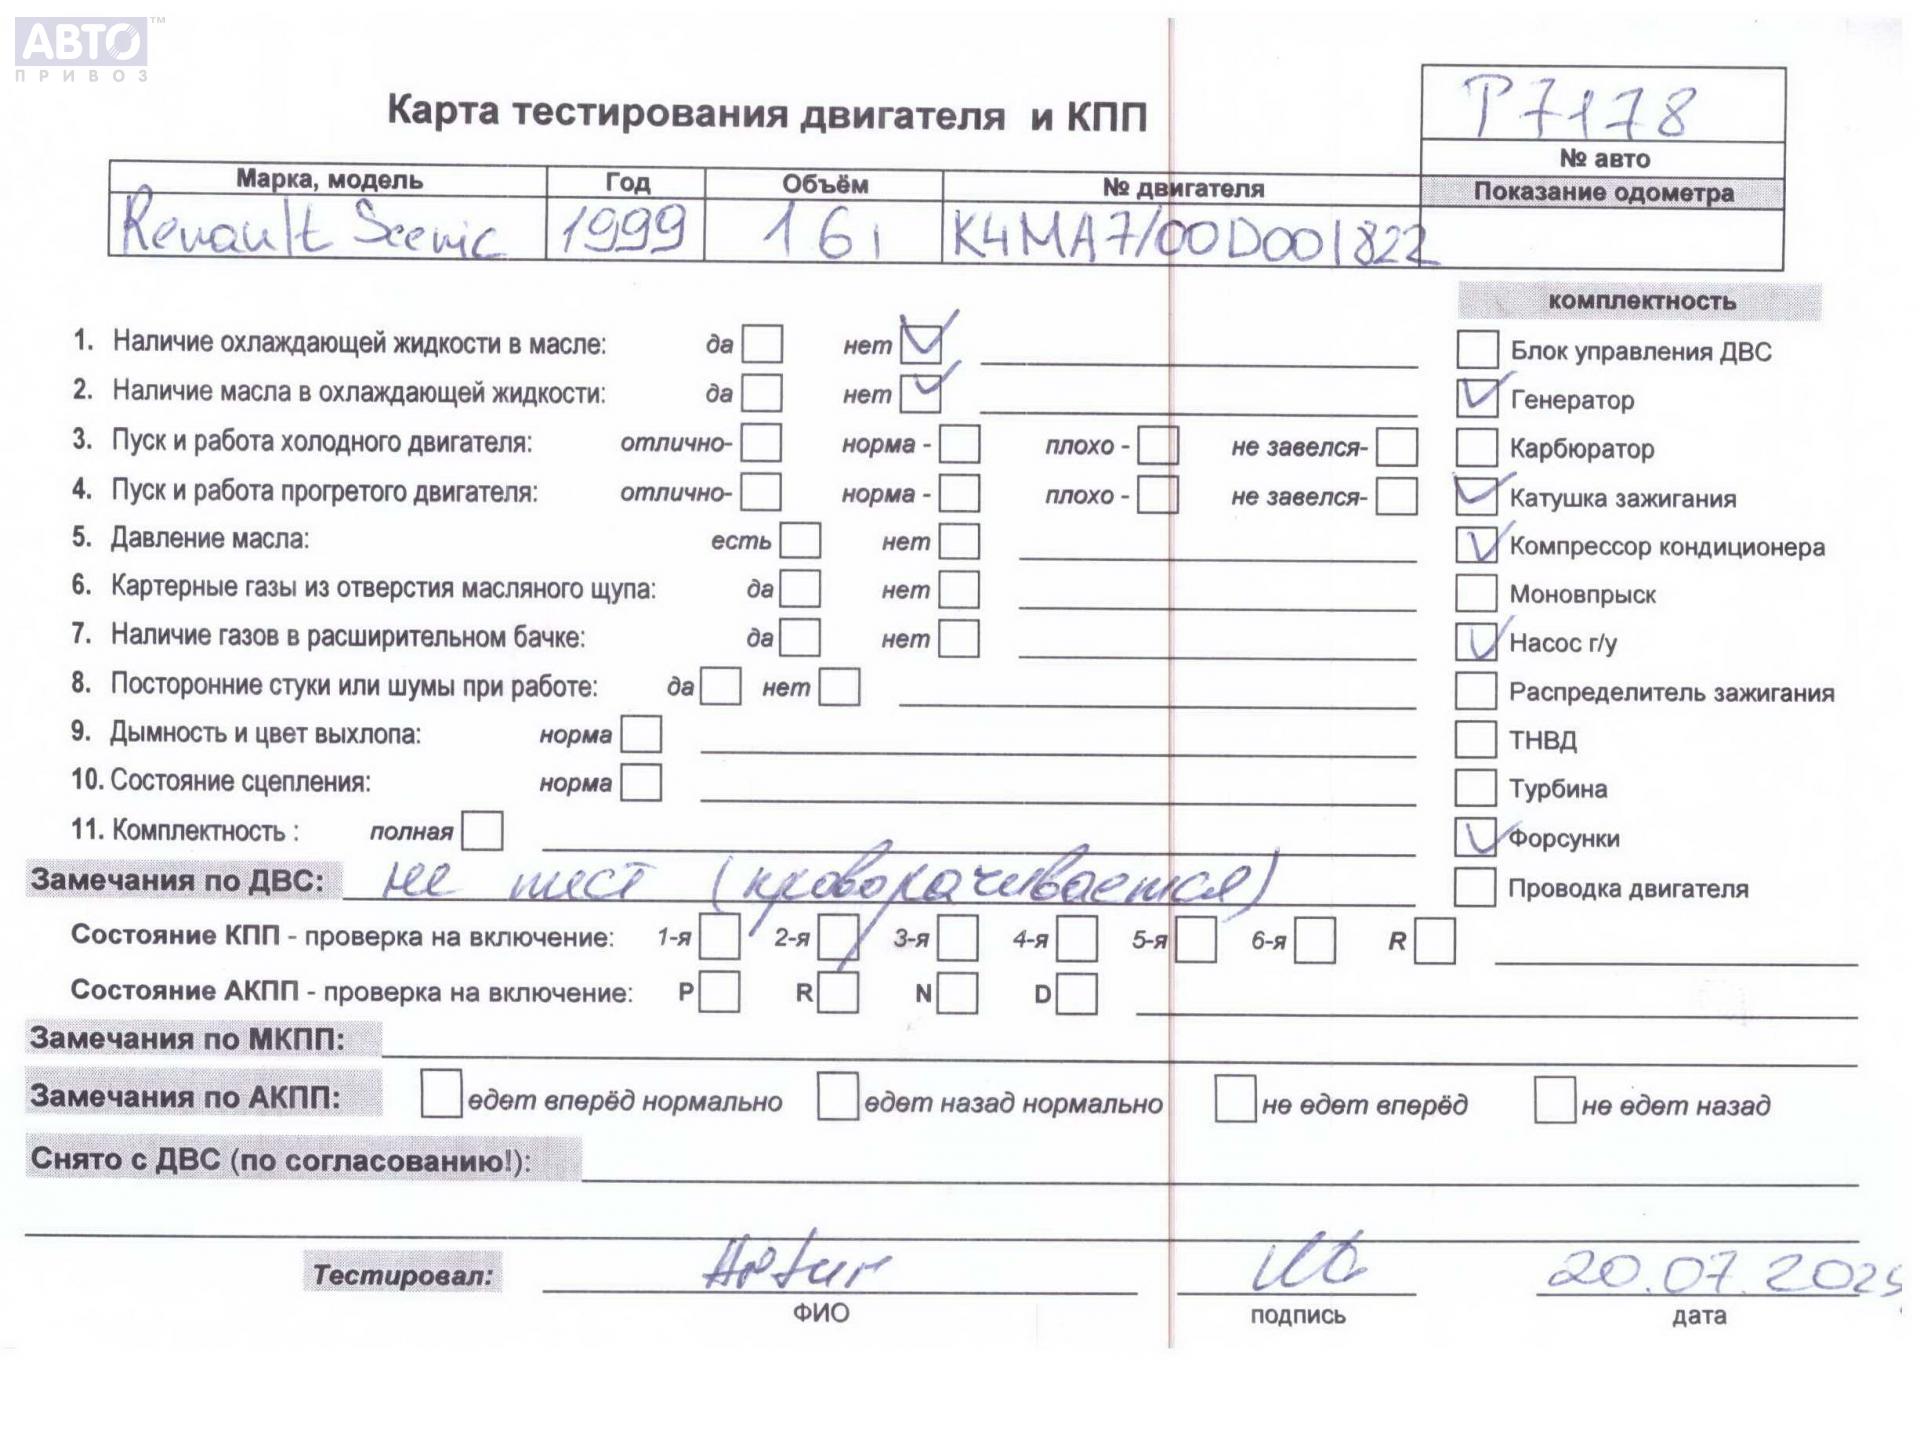 АВТО™
ПРИВОЗ
Карта тестирования двигателя и КПП
P7178
№ авто
Марка, модель Год Объём № двигателя Показание одометра
Renault Scenic 1999 1 6 i K4MA7/00D001822
комплектность
1. Наличие охлаждающей жидкости в масле: да нет Блок управления ДВС
2. Наличие масла в охлаждающей жидкости: да нет Генератор
3. Пуск и работа холодного двигателя: отлично- норма - плохо - не завелся- Карбюратор
4. Пуск и работа прогретого двигателя: отлично- норма - плохо - не завелся- Катушка зажигания
5. Давление масла: есть нет Компрессор кондиционера
6. Картерные газы из отверстия масляного щупа: да нет Моновпрыск
7. Наличие газов в расширительном бачке: да нет Насос г/у
8. Посторонние стуки или шумы при работе: да нет Распределитель зажигания
9. Дымность и цвет выхлопа: норма ТНВД
10. Состояние сцепления: норма Турбина
11. Комплектность : полная Форсунки
Замечания по ДВС: не тест (проворачивается) Проводка двигателя
Состояние КПП - проверка на включение: 1-я 2-я 3-я 4-я 5-я 6-я R
Состояние АКПП - проверка на включение: P R N D
Замечания по МКПП:
Замечания по АКПП: едет вперёд нормально едет назад нормально не едет вперёд не едет назад
Снято с ДВС (по согласованию!):
Тестировал: 20.07.2025
ФИО подпись дата